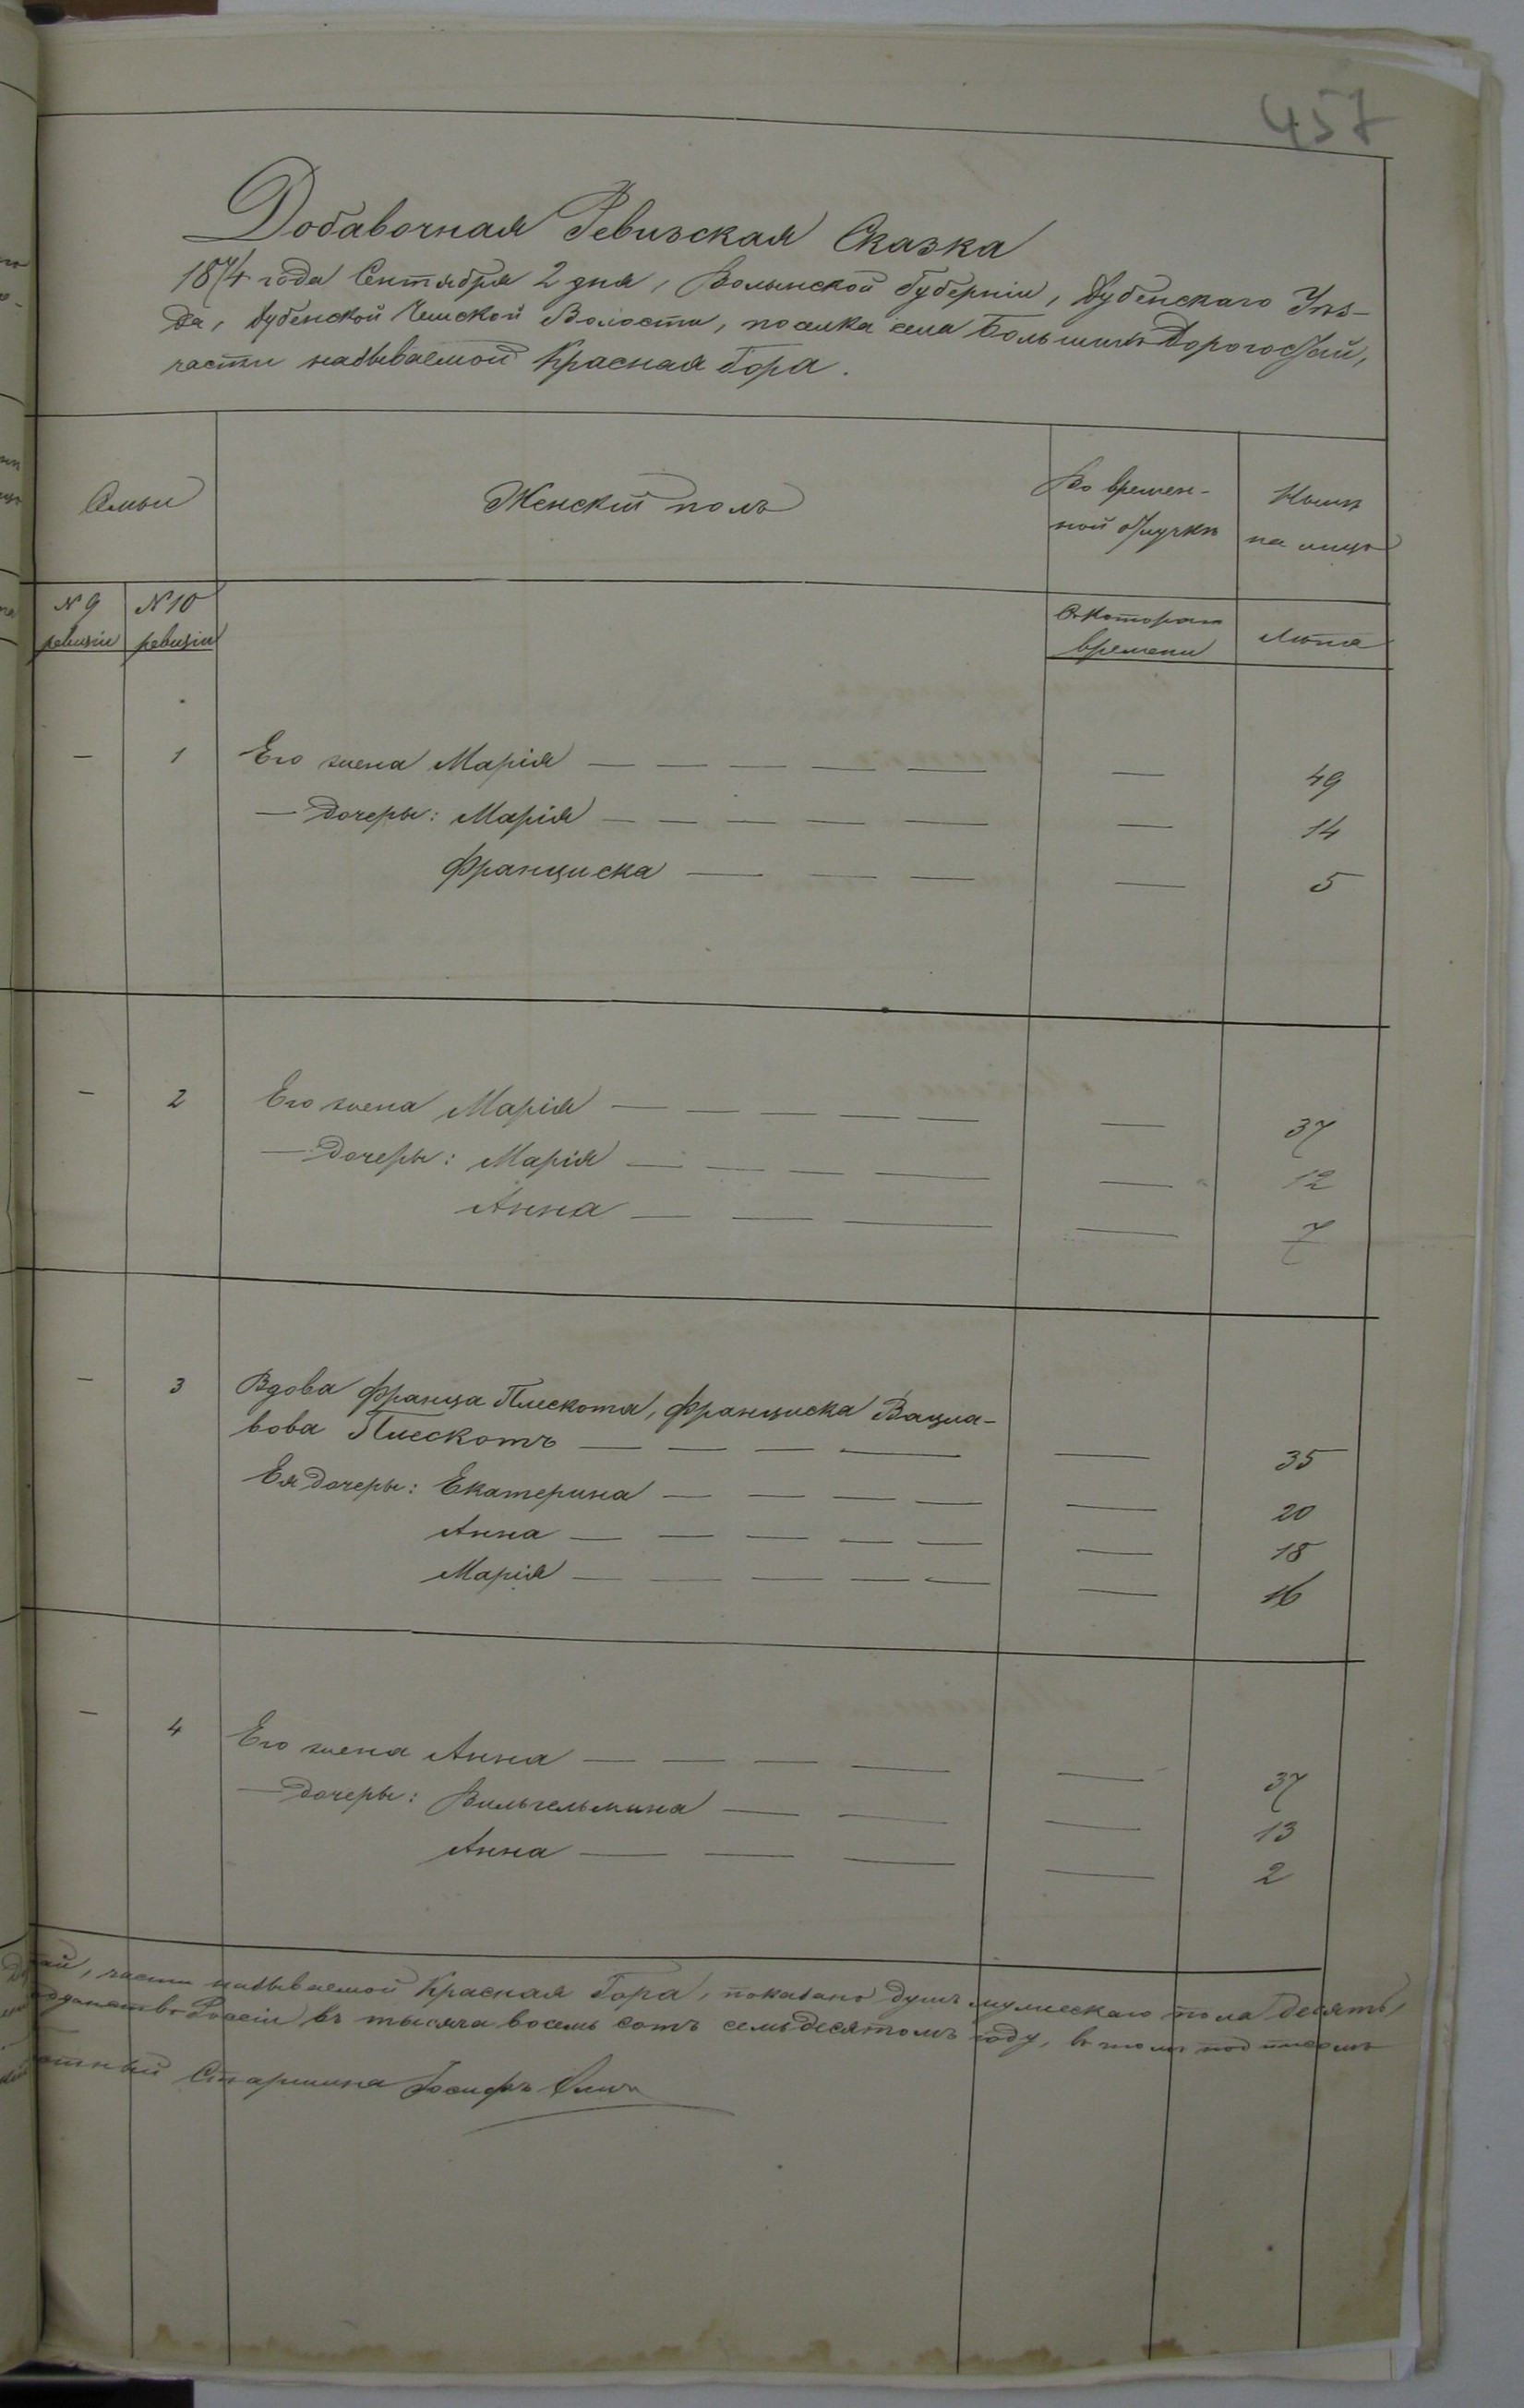 457
Добавочная Ревизская Сказка
1874 года Сентября 2 дня, Волынской Губерніи, Дубенскаго Уѣз-
да, Дубенской Чешской Волости, поселка села Большихъ Дорогостай,
части называемой Красная Гора.
Семьи
Женскій полъ
Во времен-
ной отлучкѣ
Нынѣ
на лицо
№ 9
ревизіи
№ 10
ревизіи
Съ котораго
времени
Лѣта
— 1 Его жена Марія — — — — — — 49
— Дочеры: Марія — — — — — — 14
Франциска — — — — 5
— 2 Его жена Марія — — — — — — 37
— Дочеры: Марія — — — — — 12
Анна — — — — 7
— 3 Вдова Франца Плескота, Франциска Вацла-
вова Плескотъ — — — — — 35
Ея дочеры: Екатерина — — — — — 20
Анна — — — — — — 18
Марія — — — — — — 16
— 4 Его жена Анна — — — — — 37
— Дочеры: Вильгельмина — — — 13
Анна — — — — 2
тай, части называемой Красная Гора, показано душъ мужескаго пола десять,
подданство Россіи въ тысяча восемь сотъ семьдесятомъ году, въ томъ подписомъ
Старшина Іосифъ